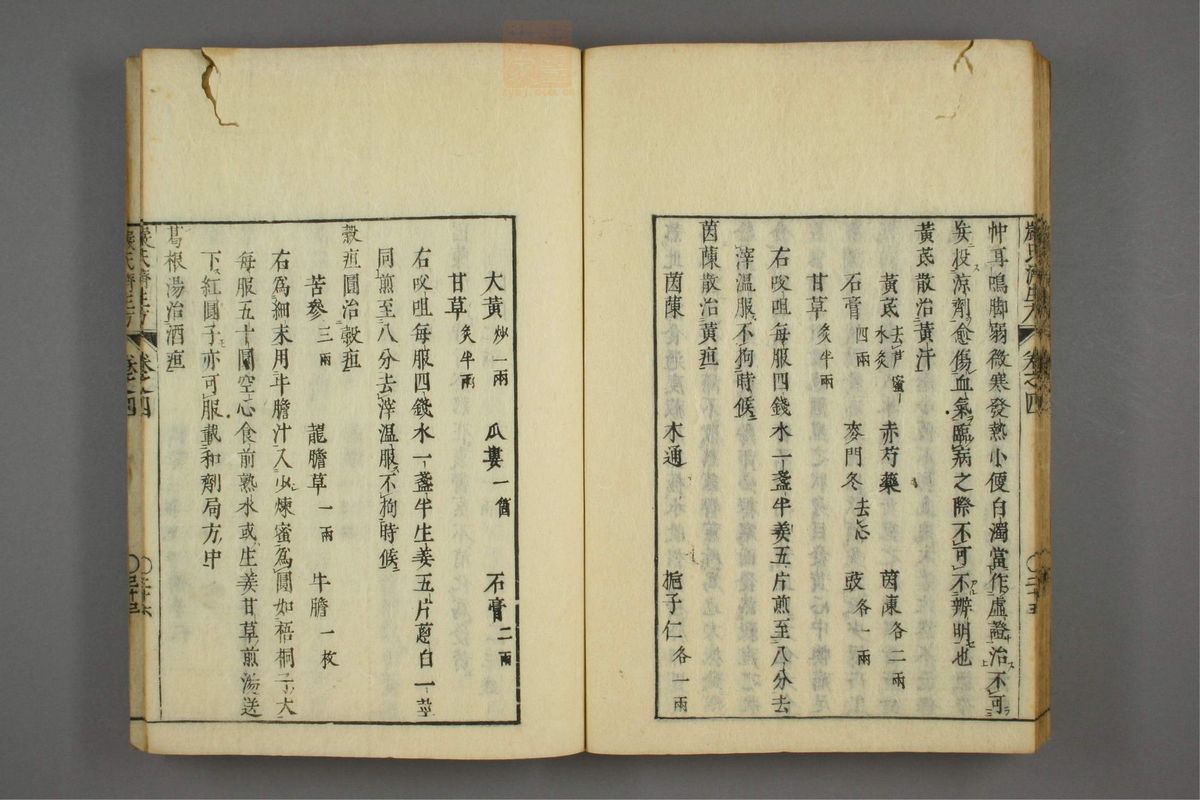 忡耳鳴脚弱微寒發熱小便白濁當作虛證治不可
矦投涼劑愈傷血氣臨病之際不可不辨明也
黃茋散治黃汗
黃茋 去芦蜜水炙 赤芍藥 茵蔯 各二兩
石膏 四兩 麥門冬 去心 豉 各一兩
甘草 炙半兩
右㕮咀每服四錢水一盞半姜五片煎至八分去
滓溫服不拘時候
茵蔯散治黃疸
茵蔯 木通 梔子仁 各一兩
大黃 炒一兩 瓜蔞 一箇 石膏 二兩
甘草 炙半兩
右㕮咀每服四錢水一盞半生姜五片葱白一莖
同煎至八分去滓溫服不拘時候
穀疸圓治穀疸
苦參 三兩 龍膽草 一兩 牛膽 一枚
右為細末用牛膽汁入少煉蜜為圓如梧桐子大
每服五十圓空心食前熟水或生姜甘草煎湯送
下紅圓子亦可服載和劑局方中
葛根湯治酒疸
嚴氏濟生方 卷之四